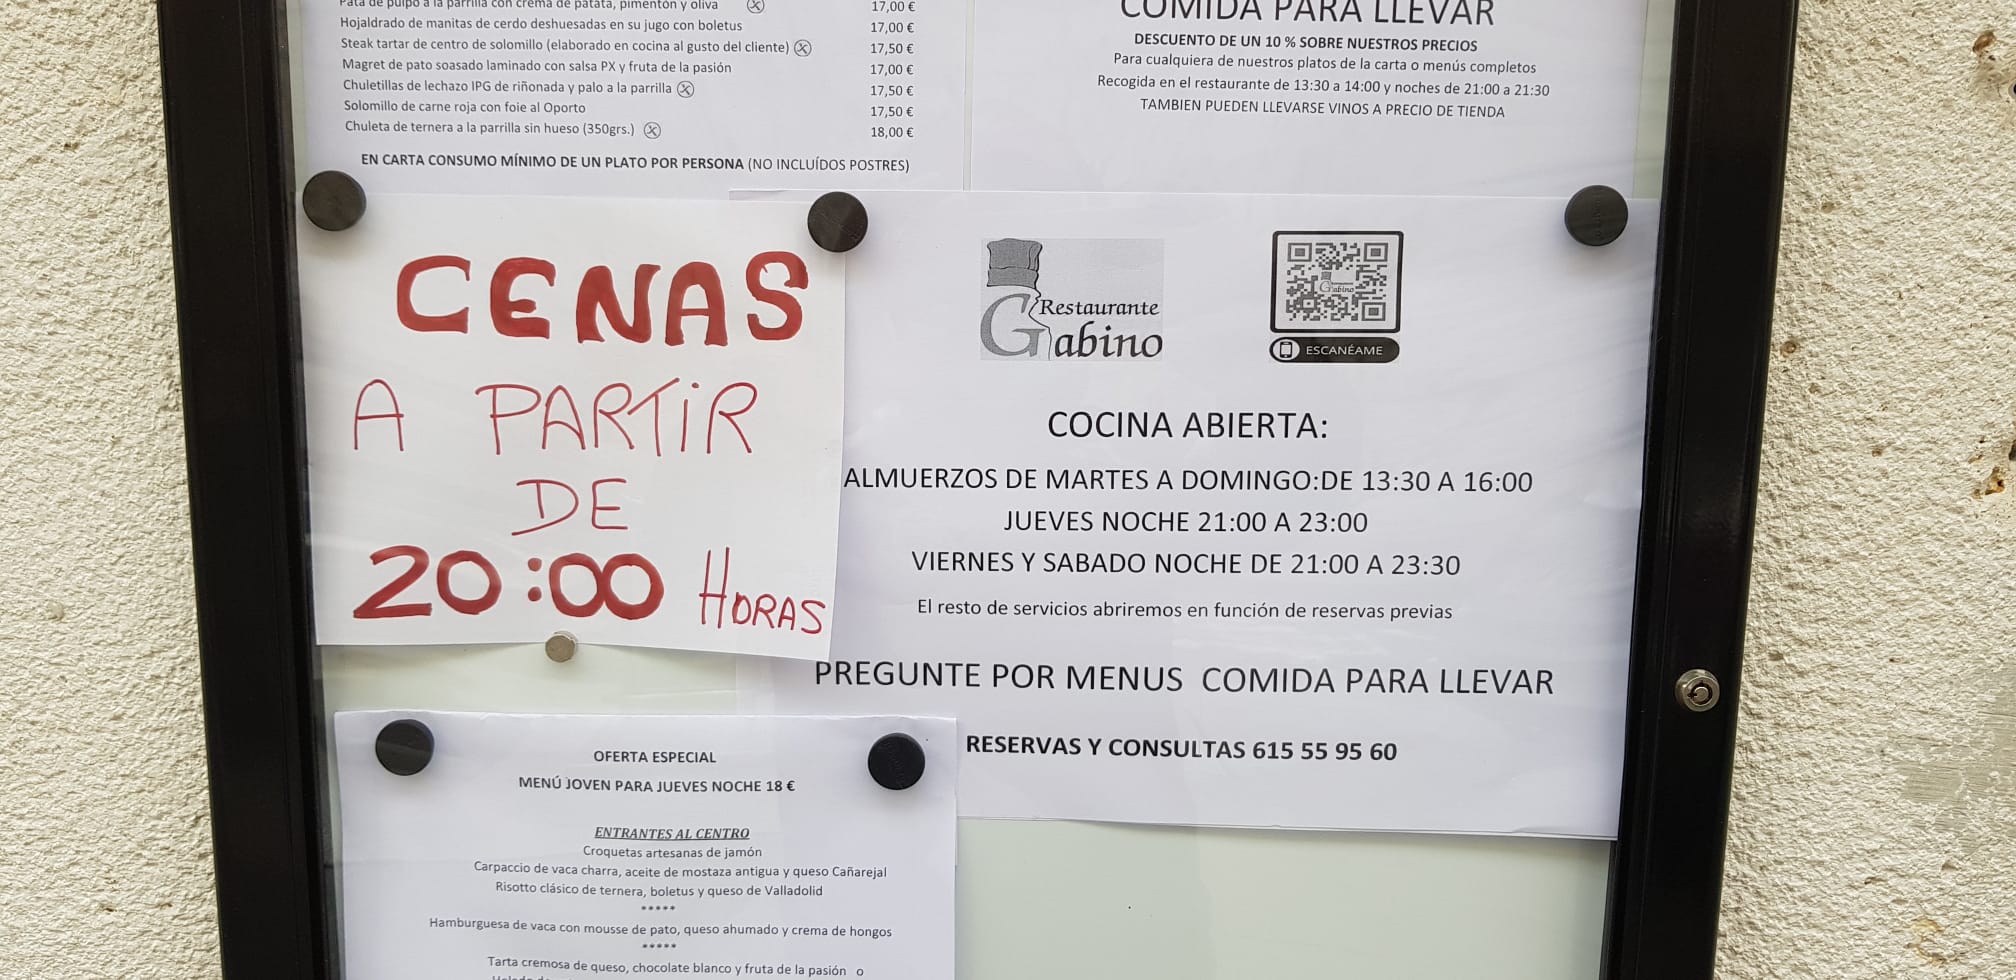 Pata de pulpo a la parrilla con crema de patata, pimentón y oliva 17,00 €
Hojaldrado de manitas de cerdo deshuesadas en su jugo con boletus 17,00 €
Steak tartar de centro de solomillo (elaborado en cocina al gusto del cliente) 17,50 €
Magret de pato soasado laminado con salsa PX y fruta de la pasión 17,00 €
Chuletillas de lechazo IPG de riñonada y palo a la parrilla 17,50 €
Solomillo de carne roja con foie al Oporto 17,50 €
Chuleta de ternera a la parrilla sin hueso (350grs.) 18,00 €
EN CARTA CONSUMO MÍNIMO DE UN PLATO POR PERSONA (NO INCLUÍDOS POSTRES)
COMIDA PARA LLEVAR
DESCUENTO DE UN 10 % SOBRE NUESTROS PRECIOS
Para cualquiera de nuestros platos de la carta o menús completos
Recogida en el restaurante de 13:30 a 14:00 y noches de 21:00 a 21:30
TAMBIEN PUEDEN LLEVARSE VINOS A PRECIO DE TIENDA
CENAS
A PARTiR
DE
20:00 HORAS
Restaurante
Gabino
Gabino
ESCANÉAME
COCINA ABIERTA:
ALMUERZOS DE MARTES A DOMINGO:DE 13:30 A 16:00
JUEVES NOCHE 21:00 A 23:00
VIERNES Y SABADO NOCHE DE 21:00 A 23:30
El resto de servicios abriremos en función de reservas previas
PREGUNTE POR MENUS COMIDA PARA LLEVAR
RESERVAS Y CONSULTAS 615 55 95 60
OFERTA ESPECIAL
MENÚ JOVEN PARA JUEVES NOCHE 18 €
ENTRANTES AL CENTRO
Croquetas artesanas de jamón
Carpaccio de vaca charra, aceite de mostaza antigua y queso Cañarejal
Risotto clásico de ternera, boletus y queso de Valladolid
*****
Hamburguesa de vaca con mousse de pato, queso ahumado y crema de hongos
*****
Tarta cremosa de queso, chocolate blanco y fruta de la pasión o